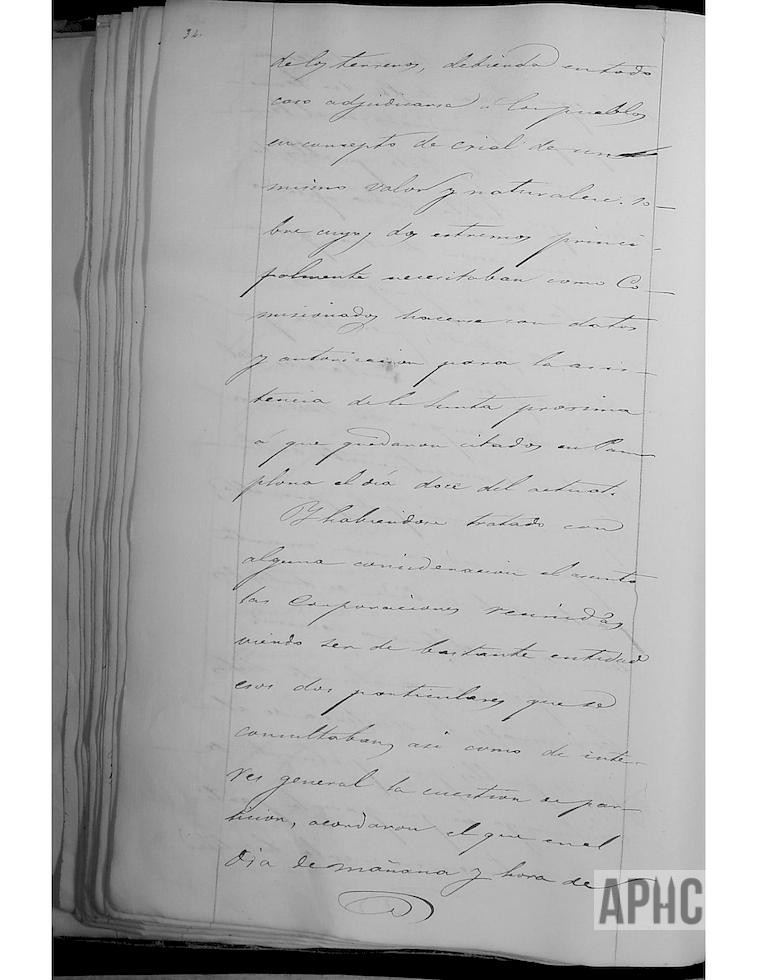 34.
de los terrenos, debiendo en todo
caso adjudicarse a los pueblos
en concepto de erial de un
mismo valor y naturaleza. so-
bre cuyos dos estremos princi-
palmente necesitaban como Co-
misionados hacerse con datos
y autorizacion para la asis-
tencia de la Junta procsima
á que quedaron citados en Pam
plona el día doce del actual.
Y habiendose tratado con
alguna consideracion el asunto
las Corporaciones reunidas
viendo ser de bastante entidad
esos dos particulares que se
consultaban, asi como de inte-
res general la cuestion de par-
ticion, acordaron el que en el
dia de mañana y hora de
APHC